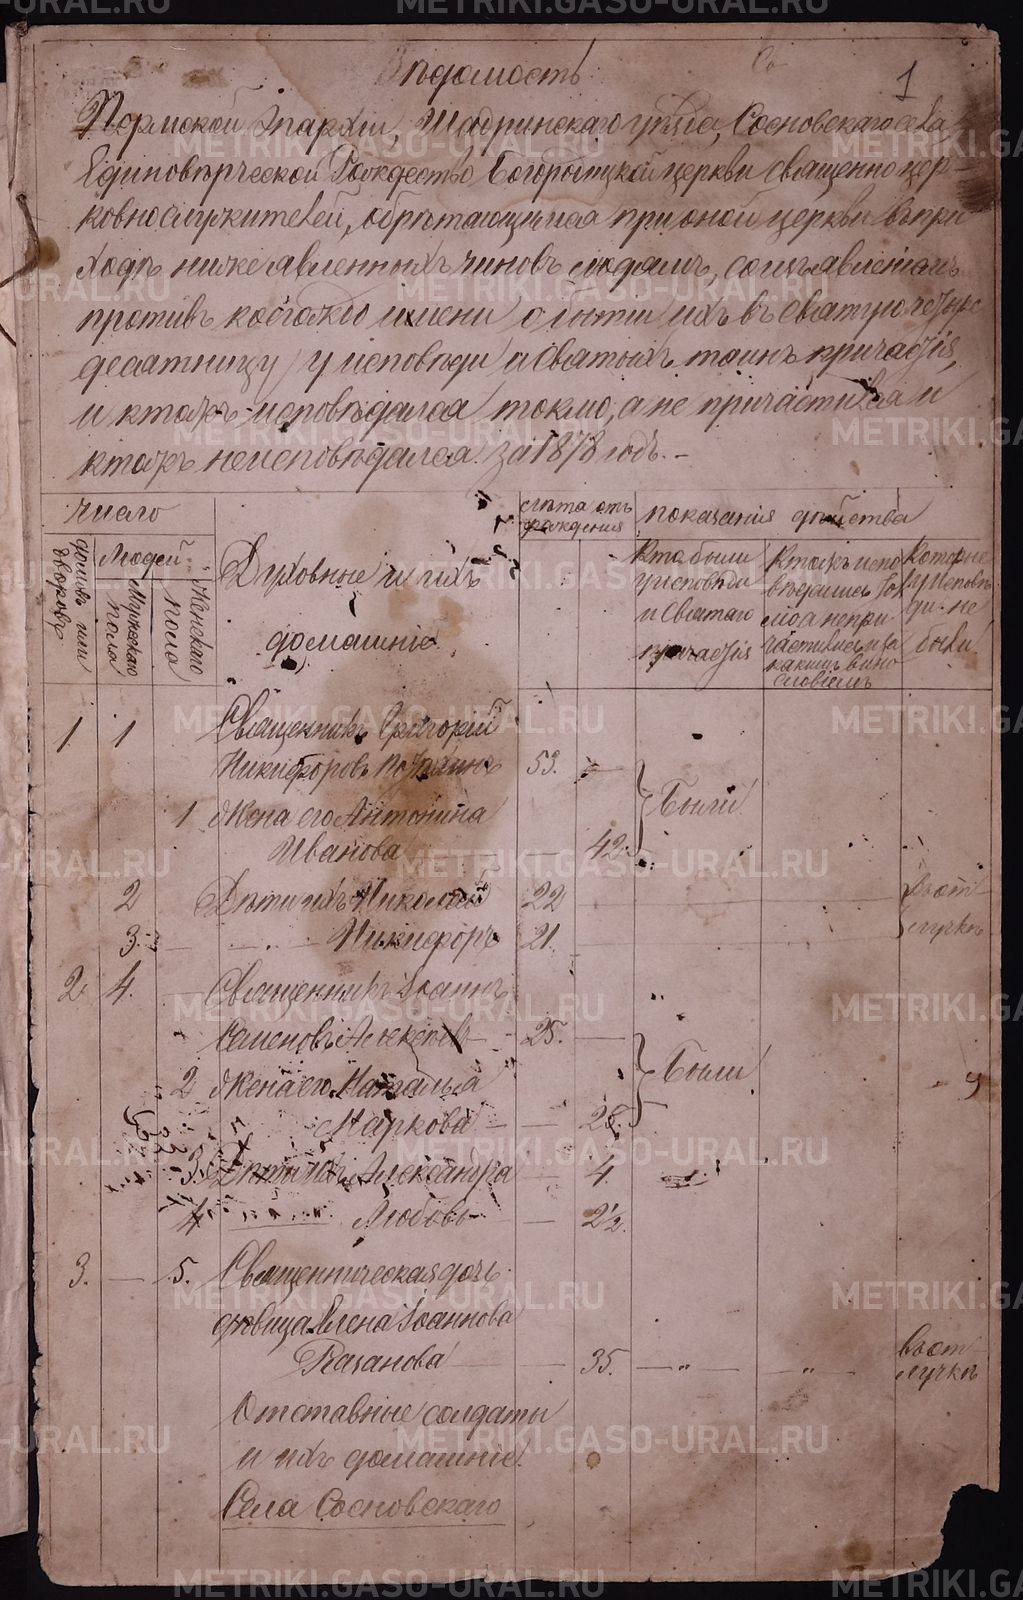 Вѣдомость
1
Пермской Епархіи, Шадринскаго уѣзда, Сосновскаго села
Единовѣрческой Рождество Богородицкой церкви священно цер-
ковнослужителей, обрѣтающимся при оной церкви въ при
ходѣ нижеявленныхъ чиновъ людамъ, со изъявленіемъ
противъ коегождо имени о бытіи ихъ въ святую четыре
десятницу у исповѣди и Святыхъ таинъ причастія,
и ктожъ исповѣдался токмо, а не причастился и
ктожъ неисповѣдался. за 1878 годъ. -
число
лѣта отъ
рожденія
показанія дѣйства
домовъ или
дворовъ
Людей
Мужескаго
пола
Женскаго
пола
Духовные и ихъ
домашніе
Кто были
у исповѣди
и Святаго
причастія
Ктожъ испо
вѣдались ток
мо а не при-
частились и за
какимъ вино
словіемъ
Которые
у исповѣ
ди не
были
1 1 Священникъ Григорій
Никифоровъ 53.
1 Жена его Антонина
Ивановa 42.
Были
2 Дѣти ихъ Николай 22 Въ от-
3. Никифоръ 21. лучкѣ
2 4. Священникъ Іоаннъ
Семеновъ 25.
2 Жена его Наталья
Маркова
Были
3. Дѣти ихъ Александра 4.
4 Любовь 2½
3. 5. Священническая дочь
дѣвица Елена Іоаннова
Казанова 35. Въ от-
лучкѣ
Отставные солдаты
и ихъ домашніе.
Села Сосновскаго
METRIKI.GASO-URAL.RU